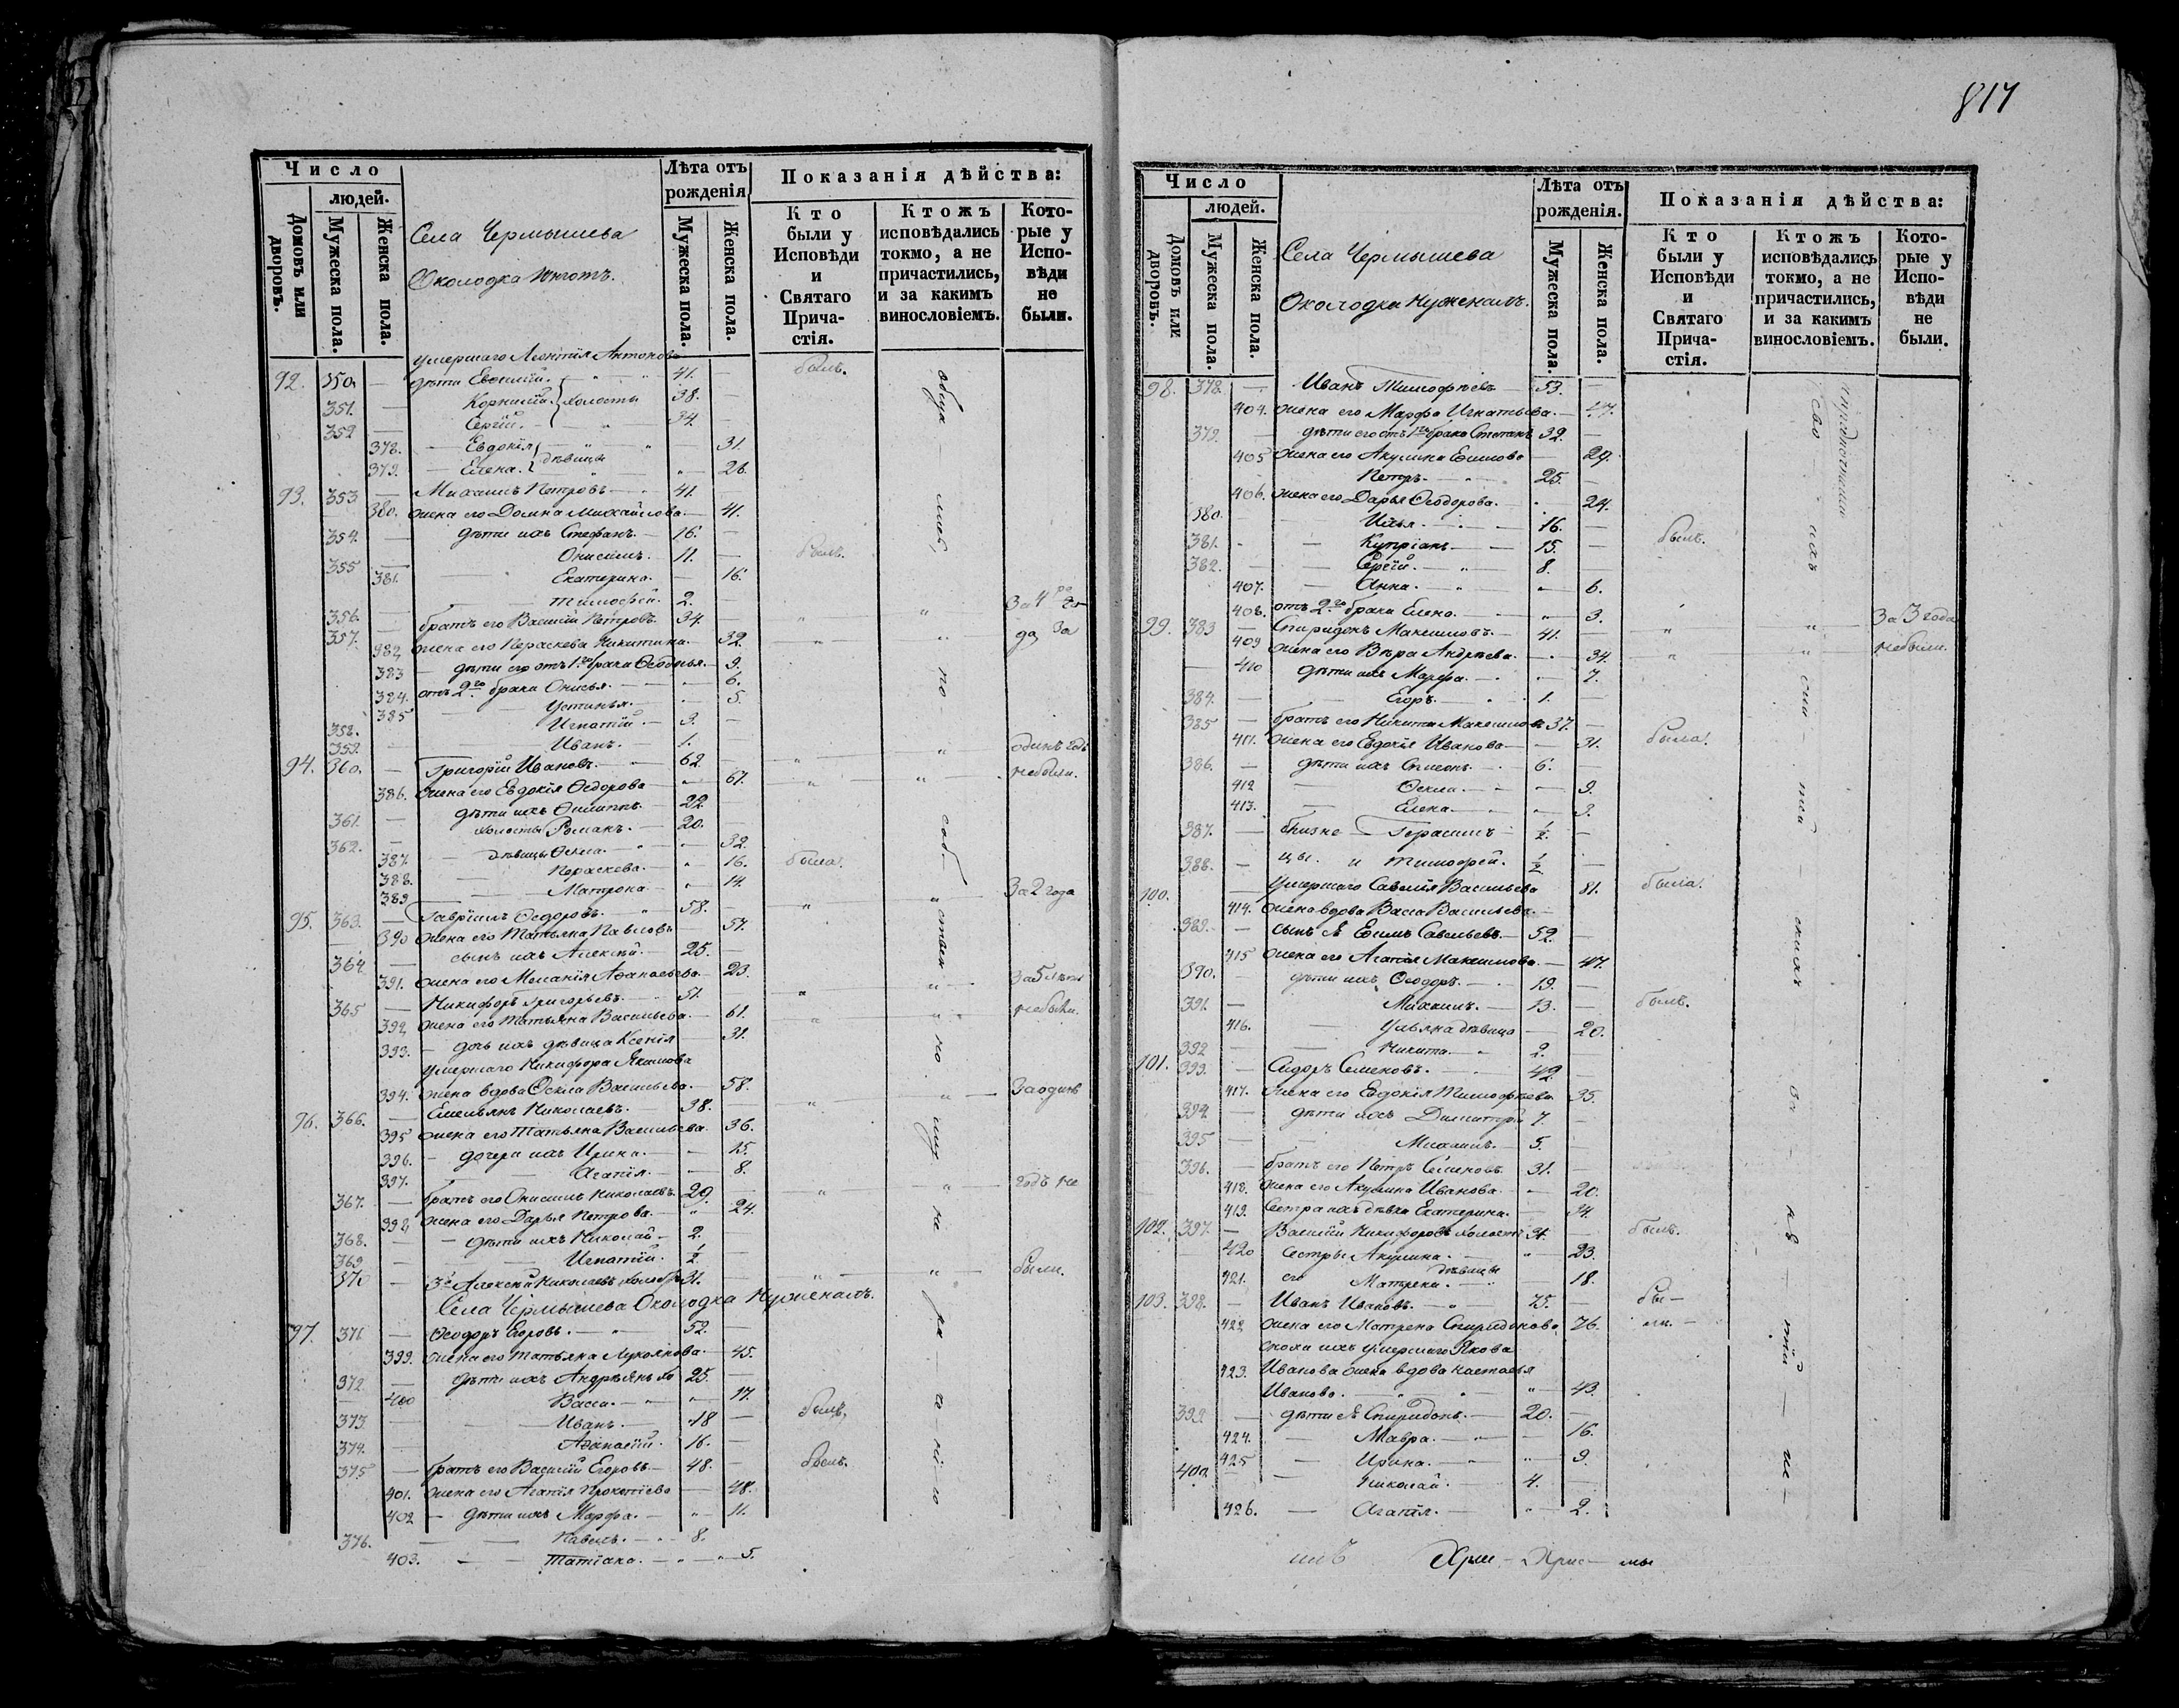 817
Число
людей.
Домовъ или дворовъ.
Мужеска пола.
Женска пола.
Села Чермышева
Околодка
Лѣта отъ рожденія
Мужеска пола.
Женска пола.
Показанія дѣйства:
Кто были у Исповѣди и Святаго Причастія.
Ктожъ исповѣдались токмо, а не причастились, и за какимъ винословіемъ.
Которые у Исповѣди не были.
умершаго Леонтія Антонова
92. 350. — дѣти Евсевій. 41. — былъ.
351. — Корнилій. холосты 38. —
352 — Сергій. — 34. —
378. — Евдокія 31.
379. — Елена. дѣвицы 26.
93. 353. — Михаилъ Петровъ 41. —
380. жена его Домна Михайлова. — 41.
354. — дѣти ихъ Стефанъ. — 16. —
355 — Онисимъ. 11. — былъ.
381. Екатерина. — 16.
356. — Тимофей. 2. —
357. — братъ его Василій Петровъ. 34.
382. жена его Параскева Никитина. 32.
383 — дѣти его отъ 1го брака Ѳеодосья. — 9.
384. отъ 2го брака Онисья. — 6.
385 Устинья. — 5.
358. Игнатій. — 3. —
359. — Иванъ. — 1.
94. 360. — Григорій Ивановъ. — 62 один годъ
386. жена его Евдокія Ѳедорова — 67. небыли.
361. — дѣти ихъ Филиппъ. — 22.
362. — холосты Романъ. — 20.
387. — дѣвицы Ѳекла. — 32.
388. — Параскева. — 16. была.
389 — Матрона — 14.
95. 363. — Гавріилъ Ѳедоровъ. 58. — За 2 года
390 жена его Татьяна Павлова 57.
364. — сынъ ихъ Алексѣй. — 25. —
391. жена его Меланія Аѳанасьева — 23. За 5 лѣтъ
365 — Никифоръ Григорьевъ. — 51. небыли.
392 жена его Татьяна Васильева. — 61.
393. — дочь ихъ дѣвица Ксенія — 31.
умершаго Никифора Якимова
394. жена вдова Ѳекла Васильева. — 58. За одинъ
96. 366. — Емельянъ Николаевъ. 38.
395 жена его Татьяна Васильева. 36.
396. — дочери ихъ Ирина. — 15.
397. — Агапія. — 8.
367. — братъ его Онисимъ Николаевъ. 29. годъ не
398 жена его Дарья Петрова. — 24.
368. — дѣти ихъ Николай — 2.
369 — Игнатій. — 1/2 —
370 — 3й Алексѣй Николаевъ холостъ 31. были.
Села Чермышева Околодка Нуженалъ.
97. 371 — Ѳеодоръ Егоровъ. — 52. —
399. жена его Татьяна Лукоянова. — 45.
372 — дѣти ихъ Андреянъ 25. —
400 Васса. — 17.
373 — Иванъ. — 18 — былъ.
374. — Аѳанасій. — 16. —
375 — братъ его Василій Егоровъ. — 48. — былъ.
401. жена его Агапія Прокопіева 48.
402 — дѣти ихъ Марфа. — 11.
376. — Павелъ. — 8.
403. — Татіана. — 5.
Число
людей.
Домовъ или дворовъ.
Мужеска пола.
Женска пола.
Села Чермышева
Околодка Нуженалъ.
Лѣта отъ рожденія.
Мужеска пола.
Женска пола.
Показанія дѣйства:
Кто были у Исповѣди и Святаго Причастія.
Ктожъ исповѣдались токмо, а не причастились, и за какимъ винословіемъ.
Которые у Исповѣди не были.
98. 378. — Иванъ Тимофѣевъ — 53. —
404. жена его Марфа Игнатьева. — 47.
379. — дѣти его отъ 1го брака Степанъ 32. —
405 жена его Акулина Ефимова — 29.
Петръ. — 25. —
406. жена его Дарья Ѳеодорова. — 24.
380. — Илья. — 16. —
381. — Купріанъ — 15. — былъ.
382. — Сергій. — 8. —
407. — Анна. — 6.
408. отъ 2го брака Елена. — 3.
99. 383 — Спиридонъ Максимовъ. — 41. — За 3 года
409 жена его Вѣра Андреева. — 34. небыли.
410 дѣти ихъ Марфа. — 7.
384. — Егоръ. — 1. —
385 — братъ его Никита Максимовъ 37. —
411. жена его Евдокія Иванова — 31. была.
386. — дѣти ихъ Симеонъ. — 6. —
412 — Ѳекла. — 9.
413. — Елена. — 3.
387. — близне Герасимъ — 1/2 —
388. — цы. и Тимофей. 1/2 —
100. — умершаго Савелія Васильева 81. была.
414. жена вдова Васса Васильева. —
389. — сынъ ея Ефимъ Савельевъ. — 52. —
415 жена его Агапія Максимова. — 47.
390. — дѣти ихъ Ѳеодоръ. — 19. —
391. — Михаилъ. — 13. — былъ.
416. — Ульяна дѣвица — 20.
392 — Никита. — 2.
101. 393. — Сидоръ Семеновъ. — 42. —
417. жена его Евдокія Тимофѣева 35.
394 — дѣти ихъ Димитрій 7. —
395 — Михаилъ. — 5. —
396. — братъ его Петръ Семеновъ 31. —
418. жена его Акулина Иванова. — 20.
419. Сестра ихъ дѣвка Екатерина. — 34.
102. 397. — Василій Никифоровъ холостъ — былъ.
420 сестры Акулина. — 23.
421. его Матрена. дѣвицы — 18.
103. 398. — Иванъ Ивановъ. — 75. — бы-
422 жена его Матрена Спиридонова 76. ли. —
сноха ихъ умершаго Якова
423. Иванова жена вдова Настасья
Иванова. — 43.
399 — дѣти ея Спиридонъ. — 20. —
424. — Мавра. — 16.
425 — Ирина. — 9.
400. — Николай. — 4. —
426. — Агапія. — 2.